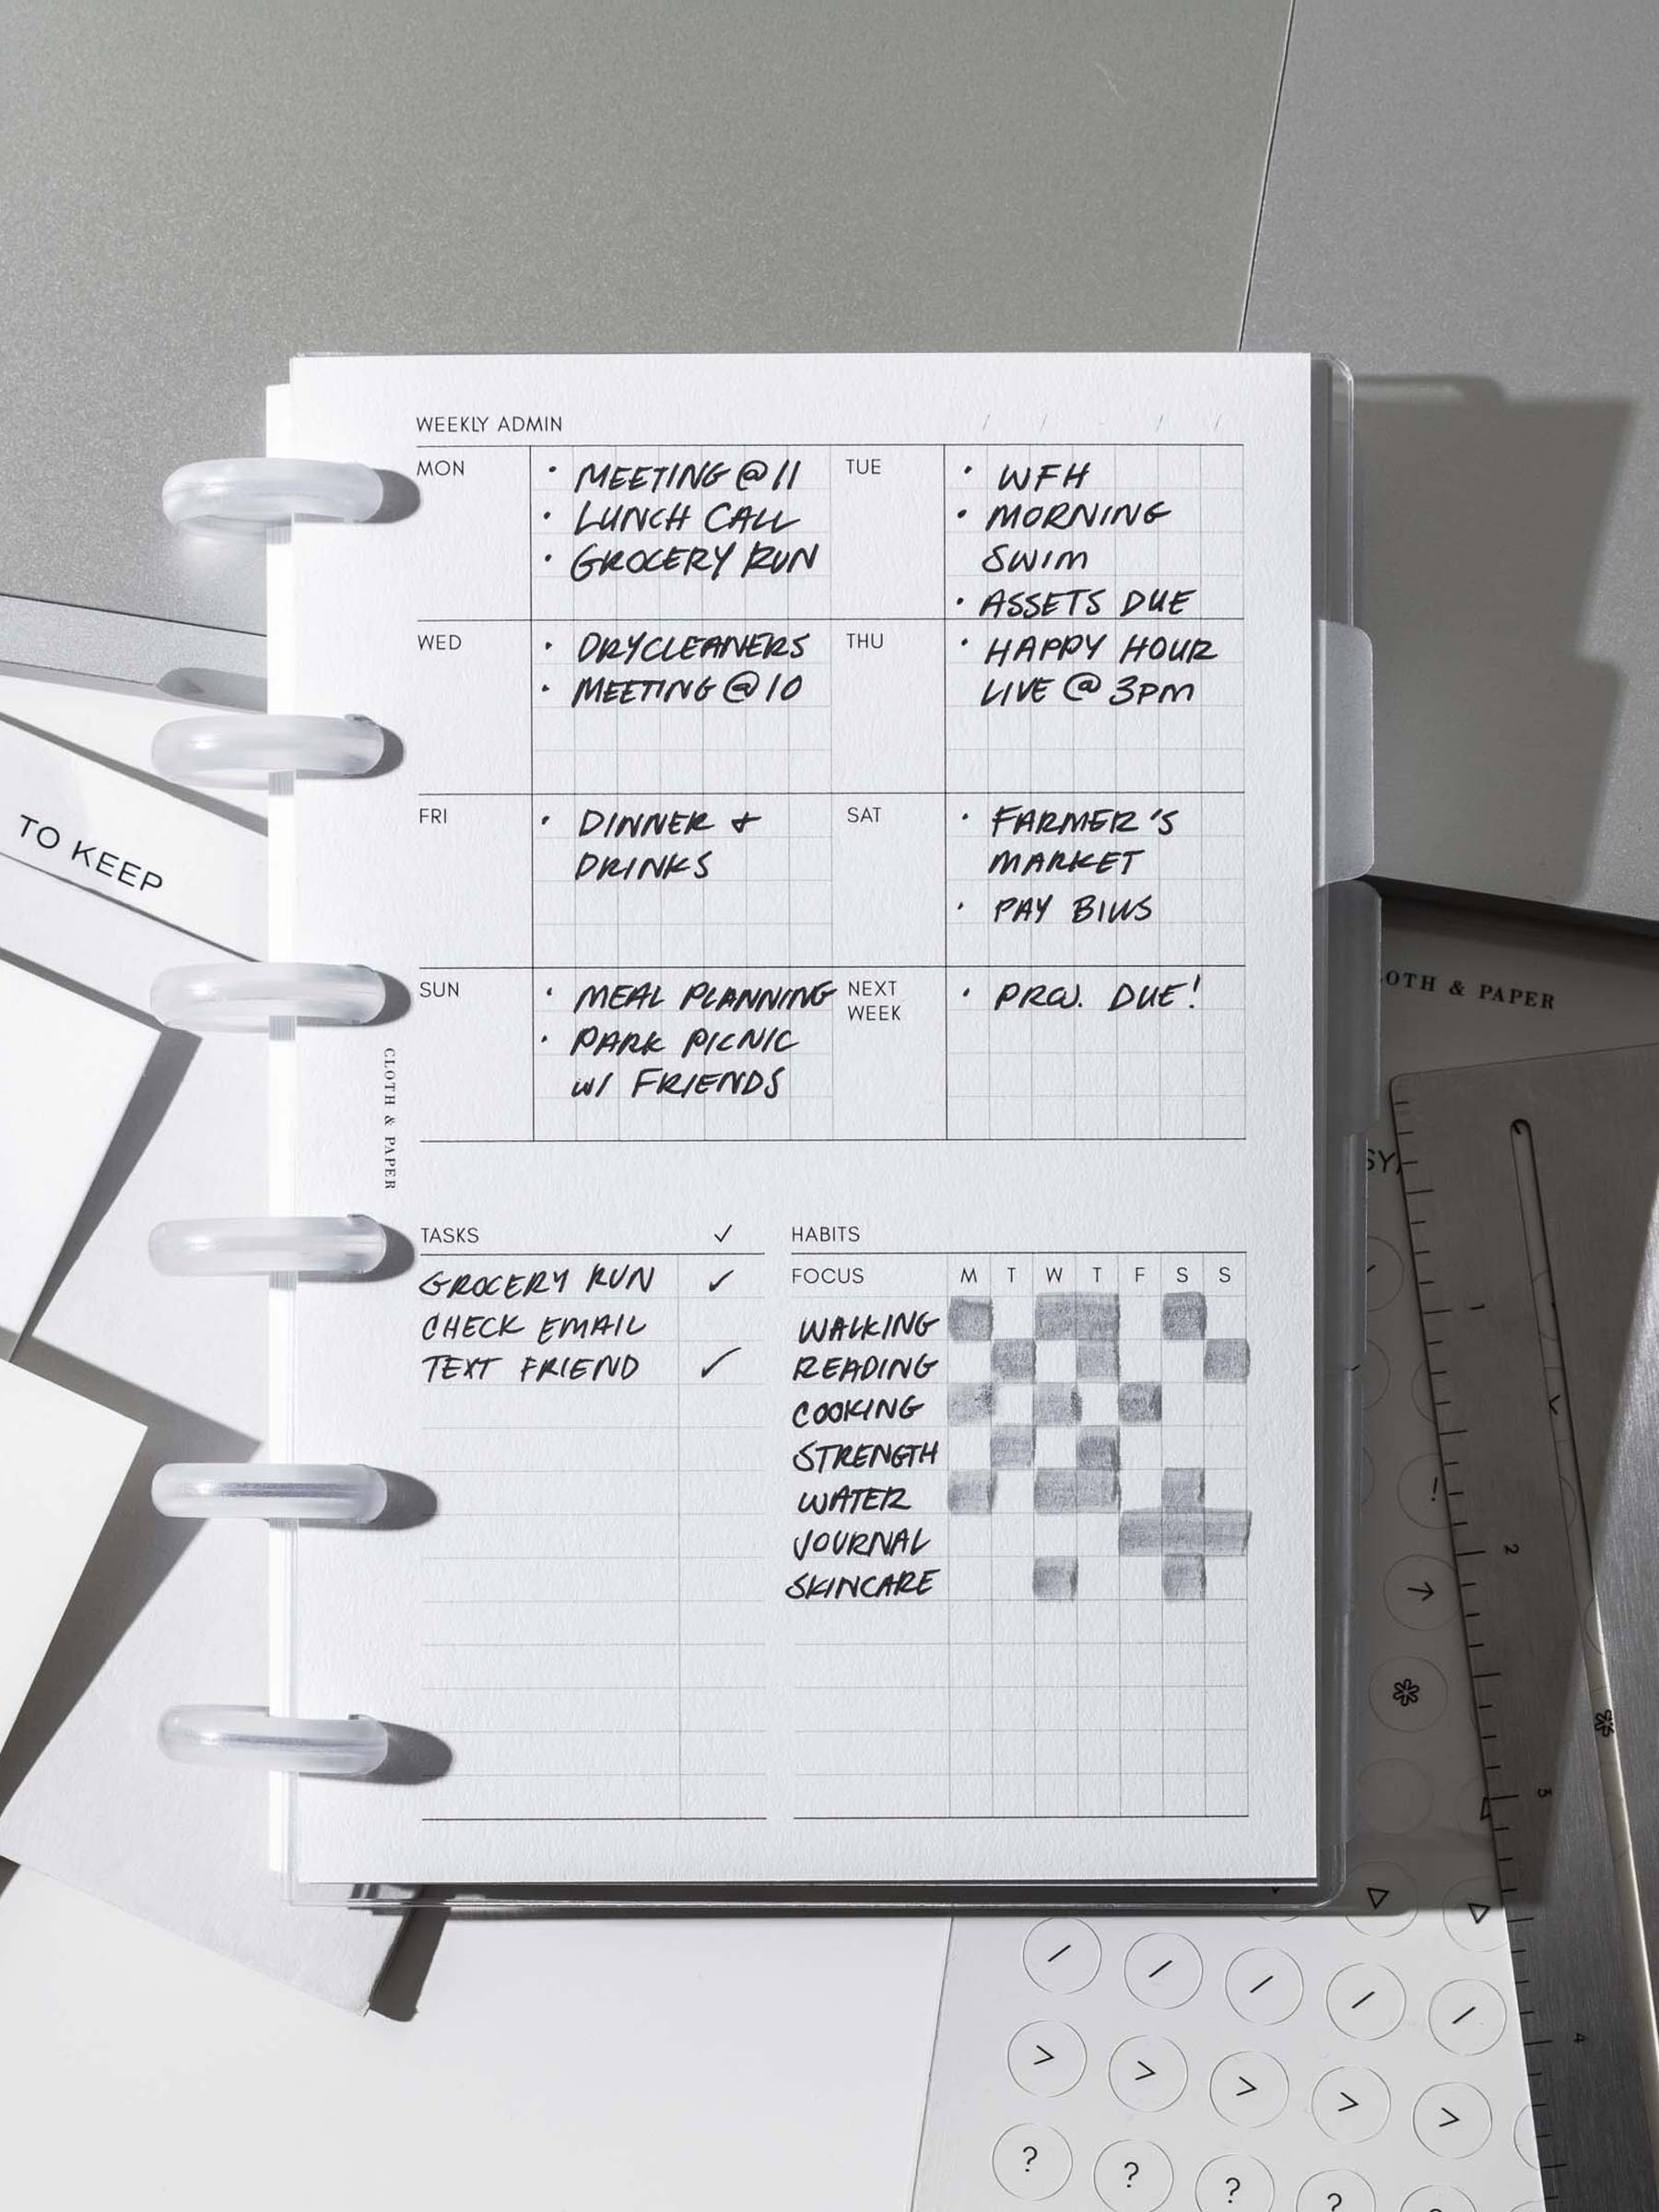 WEEKLY ADMIN
MON
• MEETING @ 11
• LUNCH CALL
• GROCERY RUN
TUE
• WFH
• MORNING
SWIM
• ASSETS DUE
WED
• DRYCLEANERS
• MEETING @ 10
THU
• HAPPY HOUR
LIVE @ 3PM
FRI
• DINNER +
DRINKS
SAT
• FARMER'S
MARKET
• PAY BILLS
SUN
• MEAL PLANNING
• PARK PICNIC
W/ FRIENDS
NEXT
WEEK
• PROJ. DUE!
TASKS ✓
GROCERY RUN ✓
CHECK EMAIL
TEXT FRIEND ✓
HABITS
FOCUS M T W T F S S
WALKING
READING
COOKING
STRENGTH
WATER
JOURNAL
SKINCARE
CLOTH & PAPER
TO KEEP
LOTH & PAPER
1
2
3
4
/ / / / /
> > > > >
? ? ? ?